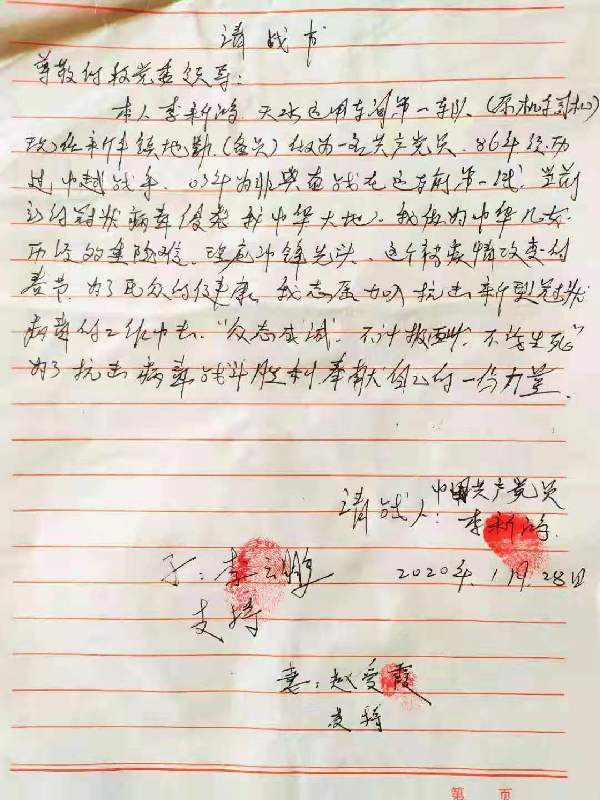 请战书
尊敬付段党委领导:
本人李新鸿,天水运用车间第一车队(原机车司机)
现任新车接地勤(鱼头)做为一名共产党员,86年经历
过中越战争,03年为非典奋战在运转前第一线,当前
新付冠状病毒侵袭我中华大地,我做为中华儿女
历经的重险难,现应冲锋先头,这个被疫情改变付
春节,为了民众付健康,我志愿加入抗击新型冠状
病毒付工作中去,"众志成诚,不计报酬,不论生死"
为了抗击病毒战斗胜利奉献自己付一份力量.
中国共产党员
请战人:李新鸿.
子:李云鹏 2020年.1月.28日
支持
妻:赵爱霞
支持
第 页